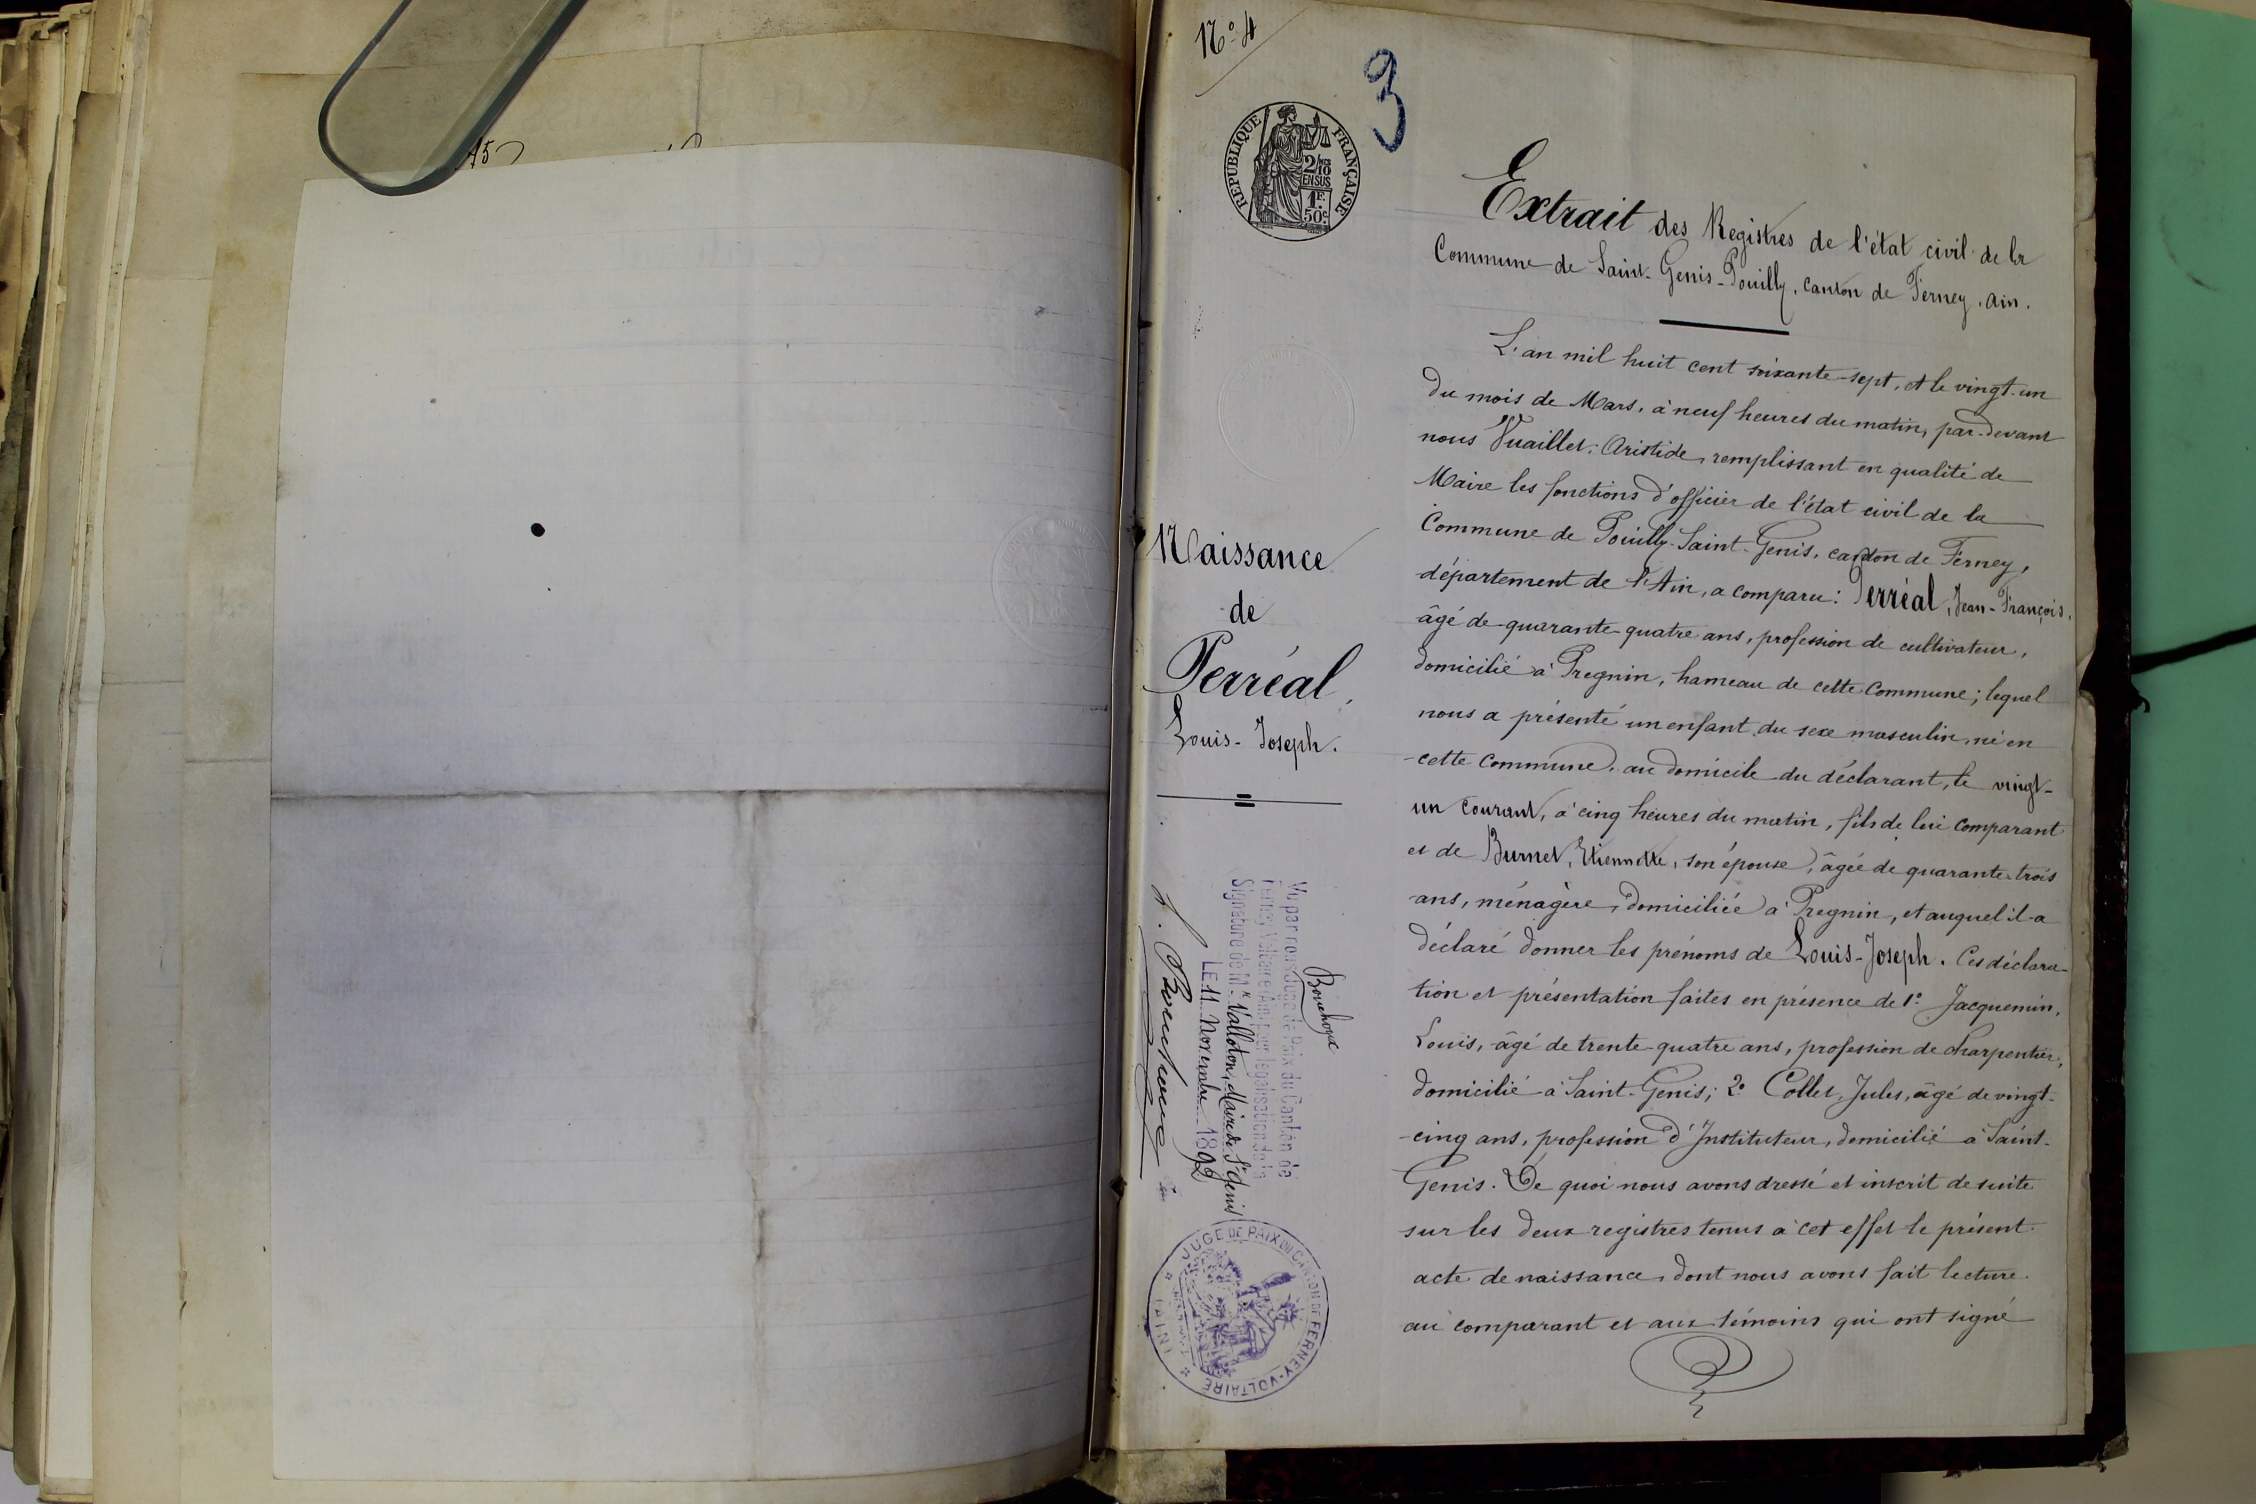 N° 4
3
REPUBLIQUE FRANÇAISE
2/10
EN SUS
1F.
50c.
Extrait des Registres de l'état civil de la
Commune de Saint-Genis-Pouilly, canton de Ferney, Ain.
L'an mil huit cent soixante-sept, et le vingt-un
du mois de Mars, à neuf heures du matin, par-devant
nous Vuaillet, Aristide, remplissant en qualité de
Maire les fonctions d'officier de l'état civil de la
Commune de Pouilly-Saint-Genis, canton de Ferney,
département de l'Ain, a comparu: Perréal, Jean-François,
âgé de quarante-quatre ans, profession de cultivateur,
domicilié à Pregnin, hameau de cette Commune; lequel
nous a présenté un enfant du sexe masculin, né en
cette Commune, au domicile du déclarant, le vingt-
un courant, à cinq heures du matin, fils de lui comparant
et de Burnet, Etiennette, son épouse, âgée de quarante-trois
ans, ménagère, domiciliée à Pregnin, et auquel il a
déclaré donner les prénoms de Louis-Joseph. Ces déclara-
tion et présentation faites en présence de 1° Jacquemin,
Louis, âgé de trente-quatre ans, profession de charpentier,
domicilié à Saint-Genis; 2° Collet, Jules, âgé de vingt-
cinq ans, profession d'Instituteur, domicilié à Saint-
Genis. De quoi nous avons dressé et inscrit de suite
sur les deux registres tenus à cet effet le présent
acte de naissance, dont nous avons fait lecture
au comparant et aux témoins qui ont signé
Naissance
de
Perréal,
Louis-Joseph.
Vu par nous Juge de Paix du Canton de
Ferney-Voltaire (Ain) pour légalisation de la
Signature de Mr Valloton, Maire de St Genis
LE 11 Novembre 1892
JUGE DE PAIX DU CANTON DE FERNEY-VOLTAIRE
(AIN)
15